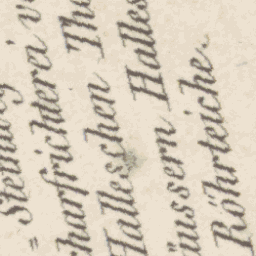 = Steinweg
harfrichterei v
Halleschen Tho
äussern Halles
Röhrteiche.